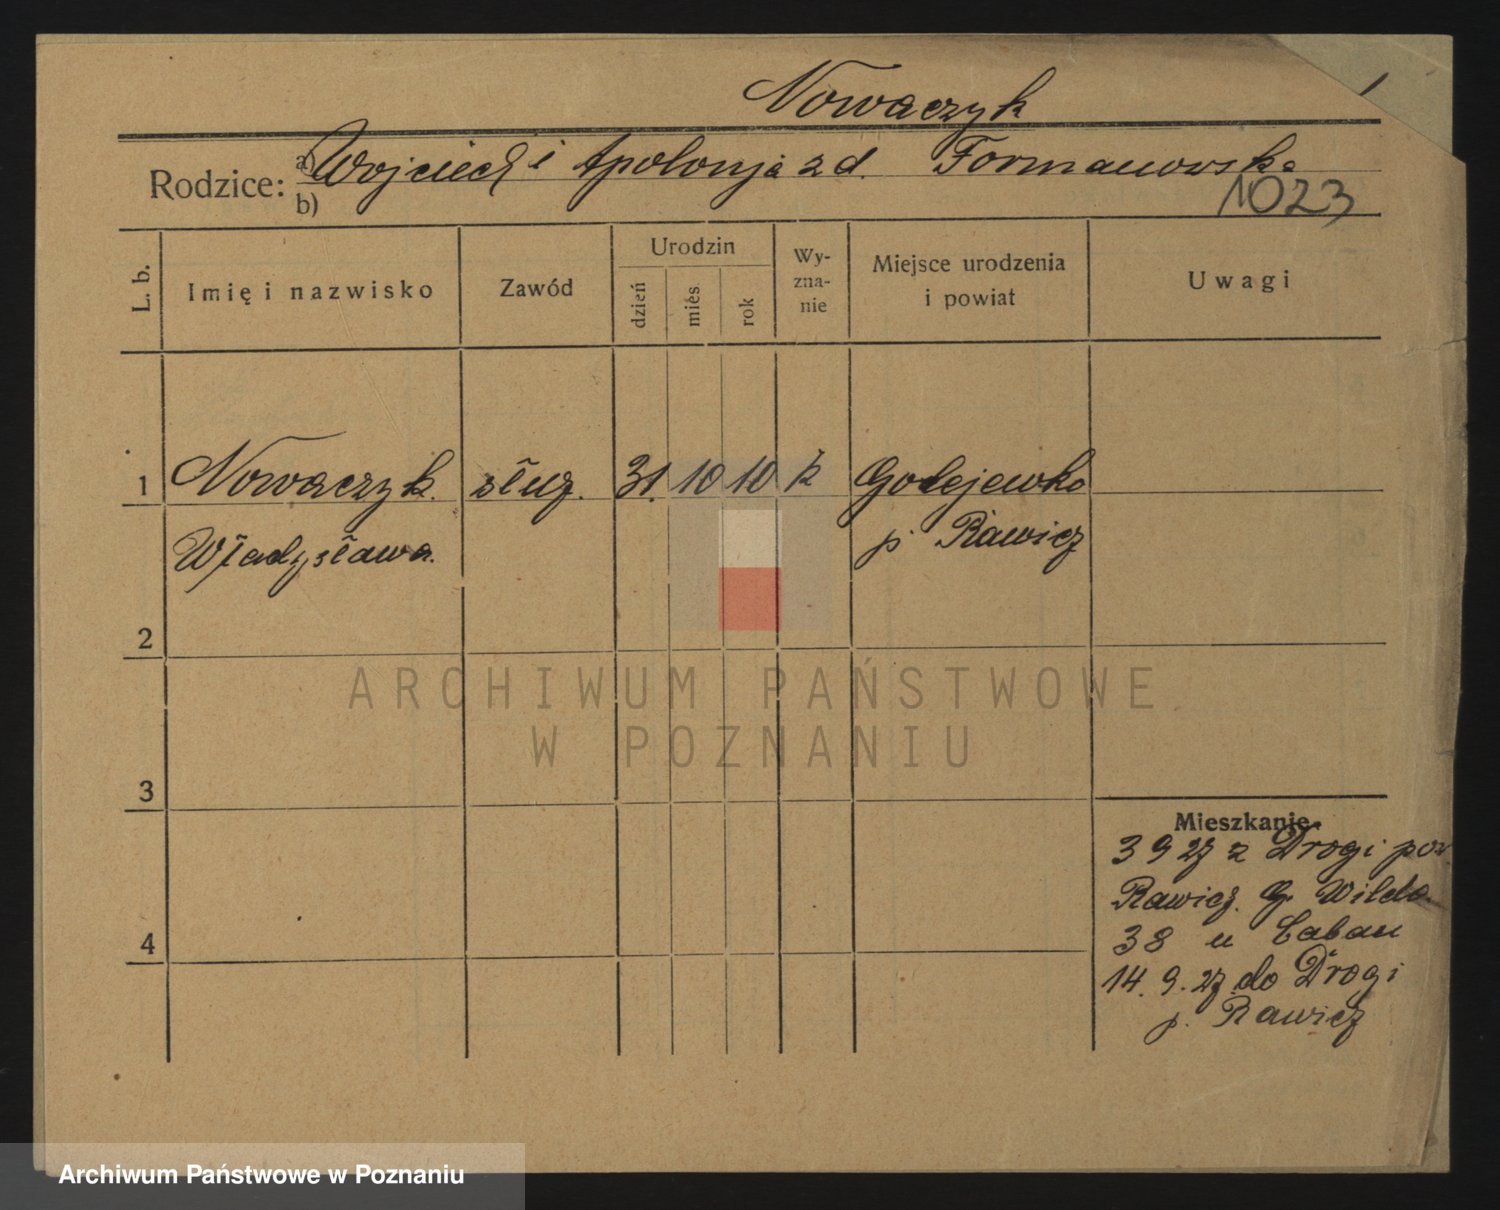 Nowaczyk
Rodzice: a) Wojciech i Apolonja z d. Formanowska
b)
1023
L. b.
Imię i nazwisko
Zawód
Urodzin
dzień
mies.
rok
Wy-
zna-
nie
Miejsce urodzenia
i powiat
Uwagi
1 Nowaczyk. służ. 31. 10 10 k Golejewko
Władysława. p. Rawicz
2
3
4
Mieszkanie
3 9 27 z Drogi pow
Rawicz. G. Wilda
38 u
14. 9. 27 do Drogi
p. Rawicz
ARCHIWUM PAŃSTWOWE
W POZNANIU
Archiwum Państwowe w Poznaniu